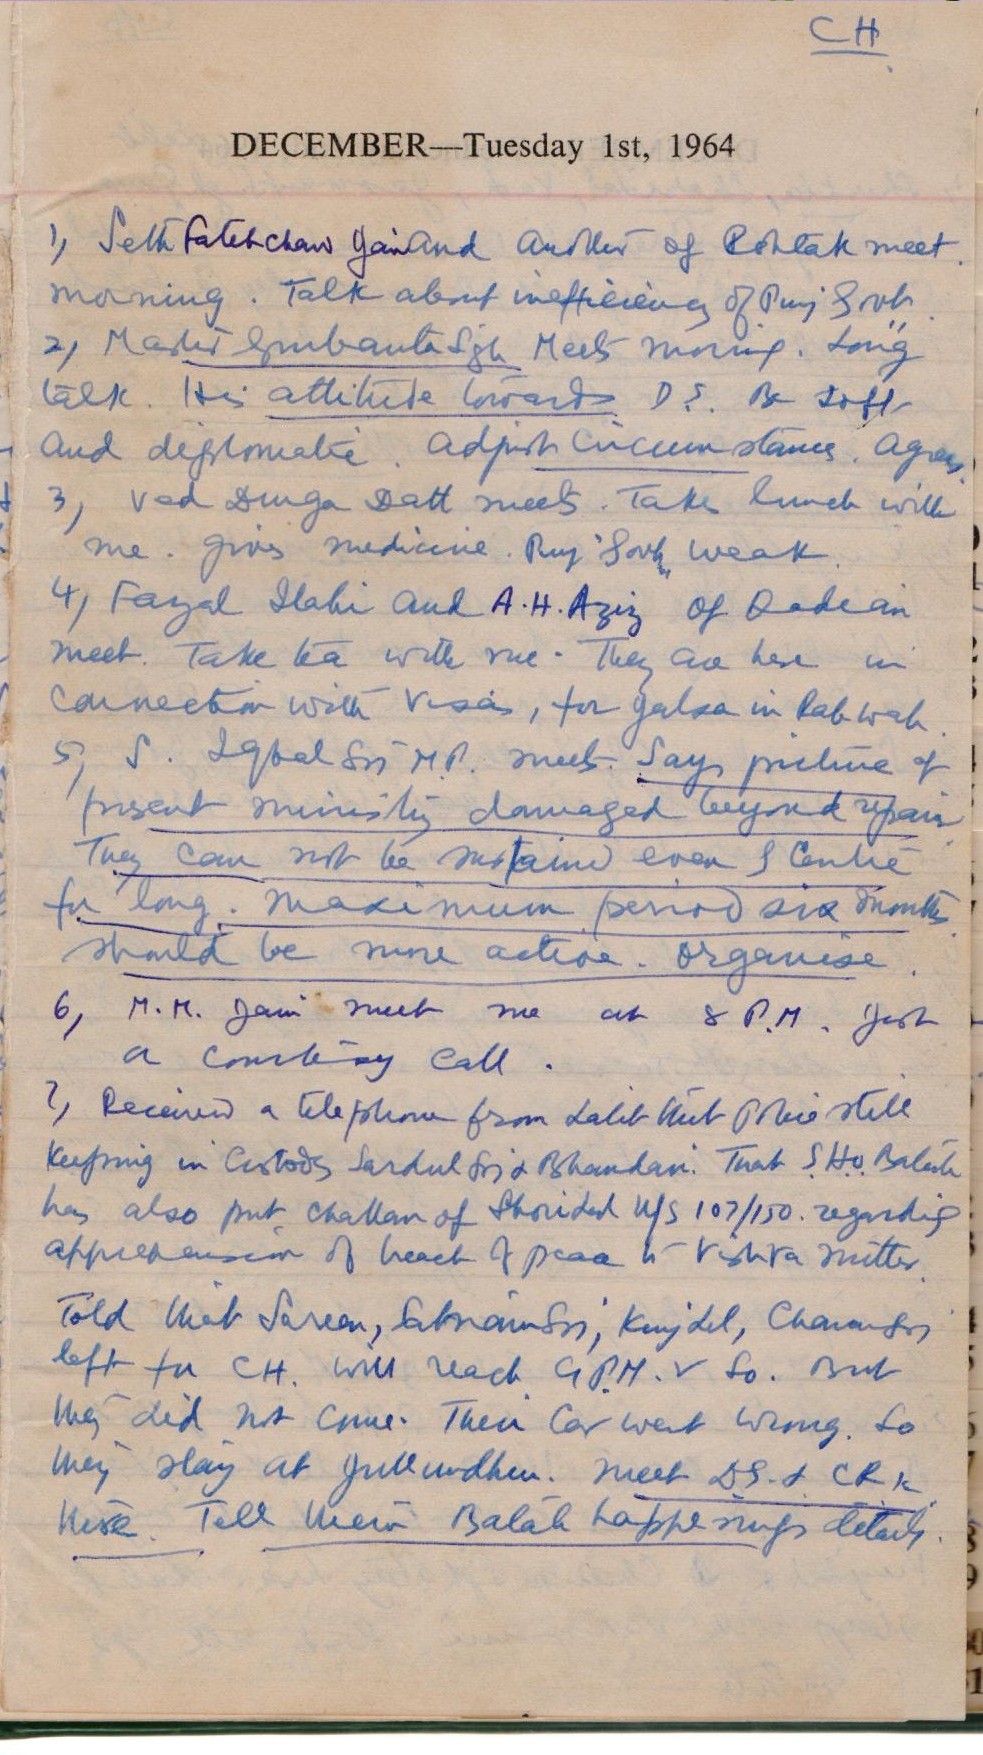 CH
DECEMBER—Tuesday 1st, 1964
1, Seth Fatehchand Jain and another of Rohtak meet.
morning. Talk about inefficiency of Punj Govt.
2, Master Gurbanta Sgh Meets morning. Long
talk. His attitude towards D.S. Be soft
and diplomatic. Adjust Circumstances. Agrees.
3, Ved Durga Datt meets. Takes lunch with
me. gives medicine. Punj Govt weak.
4, Fazal Ilahi and A.H. Aziz of Qadian
meet. Take tea with me. They are here in
connection with Visas, for Jalsa in Rabwah.
5, S. Iqbal Sgh M.P. meets. Says picture of
present ministry damaged beyond repair.
They can not be sustained even by Centre
for long. Maximum period six months
should be more active. Organise.
6, M.M. Jain meet me at 8 P.M. Just
a courtesy call.
7, Received a telephone from Lalit that Police still
keeping in Custody Sardul Sgh & Bhandari. That S.H.O. Batala
has also put challan of U/S 107/150. regarding
apprehension of breach of peace to Vishva Mitter.
Told that Sareen, Satnam Sgh, Charan Sgh
left for CH. will reach 9 P.M. or So. But
they did not come. Their Car went wrong. So
they stay at Jullundhur. meet D.S. &
here. Tell them Batala happenings details.